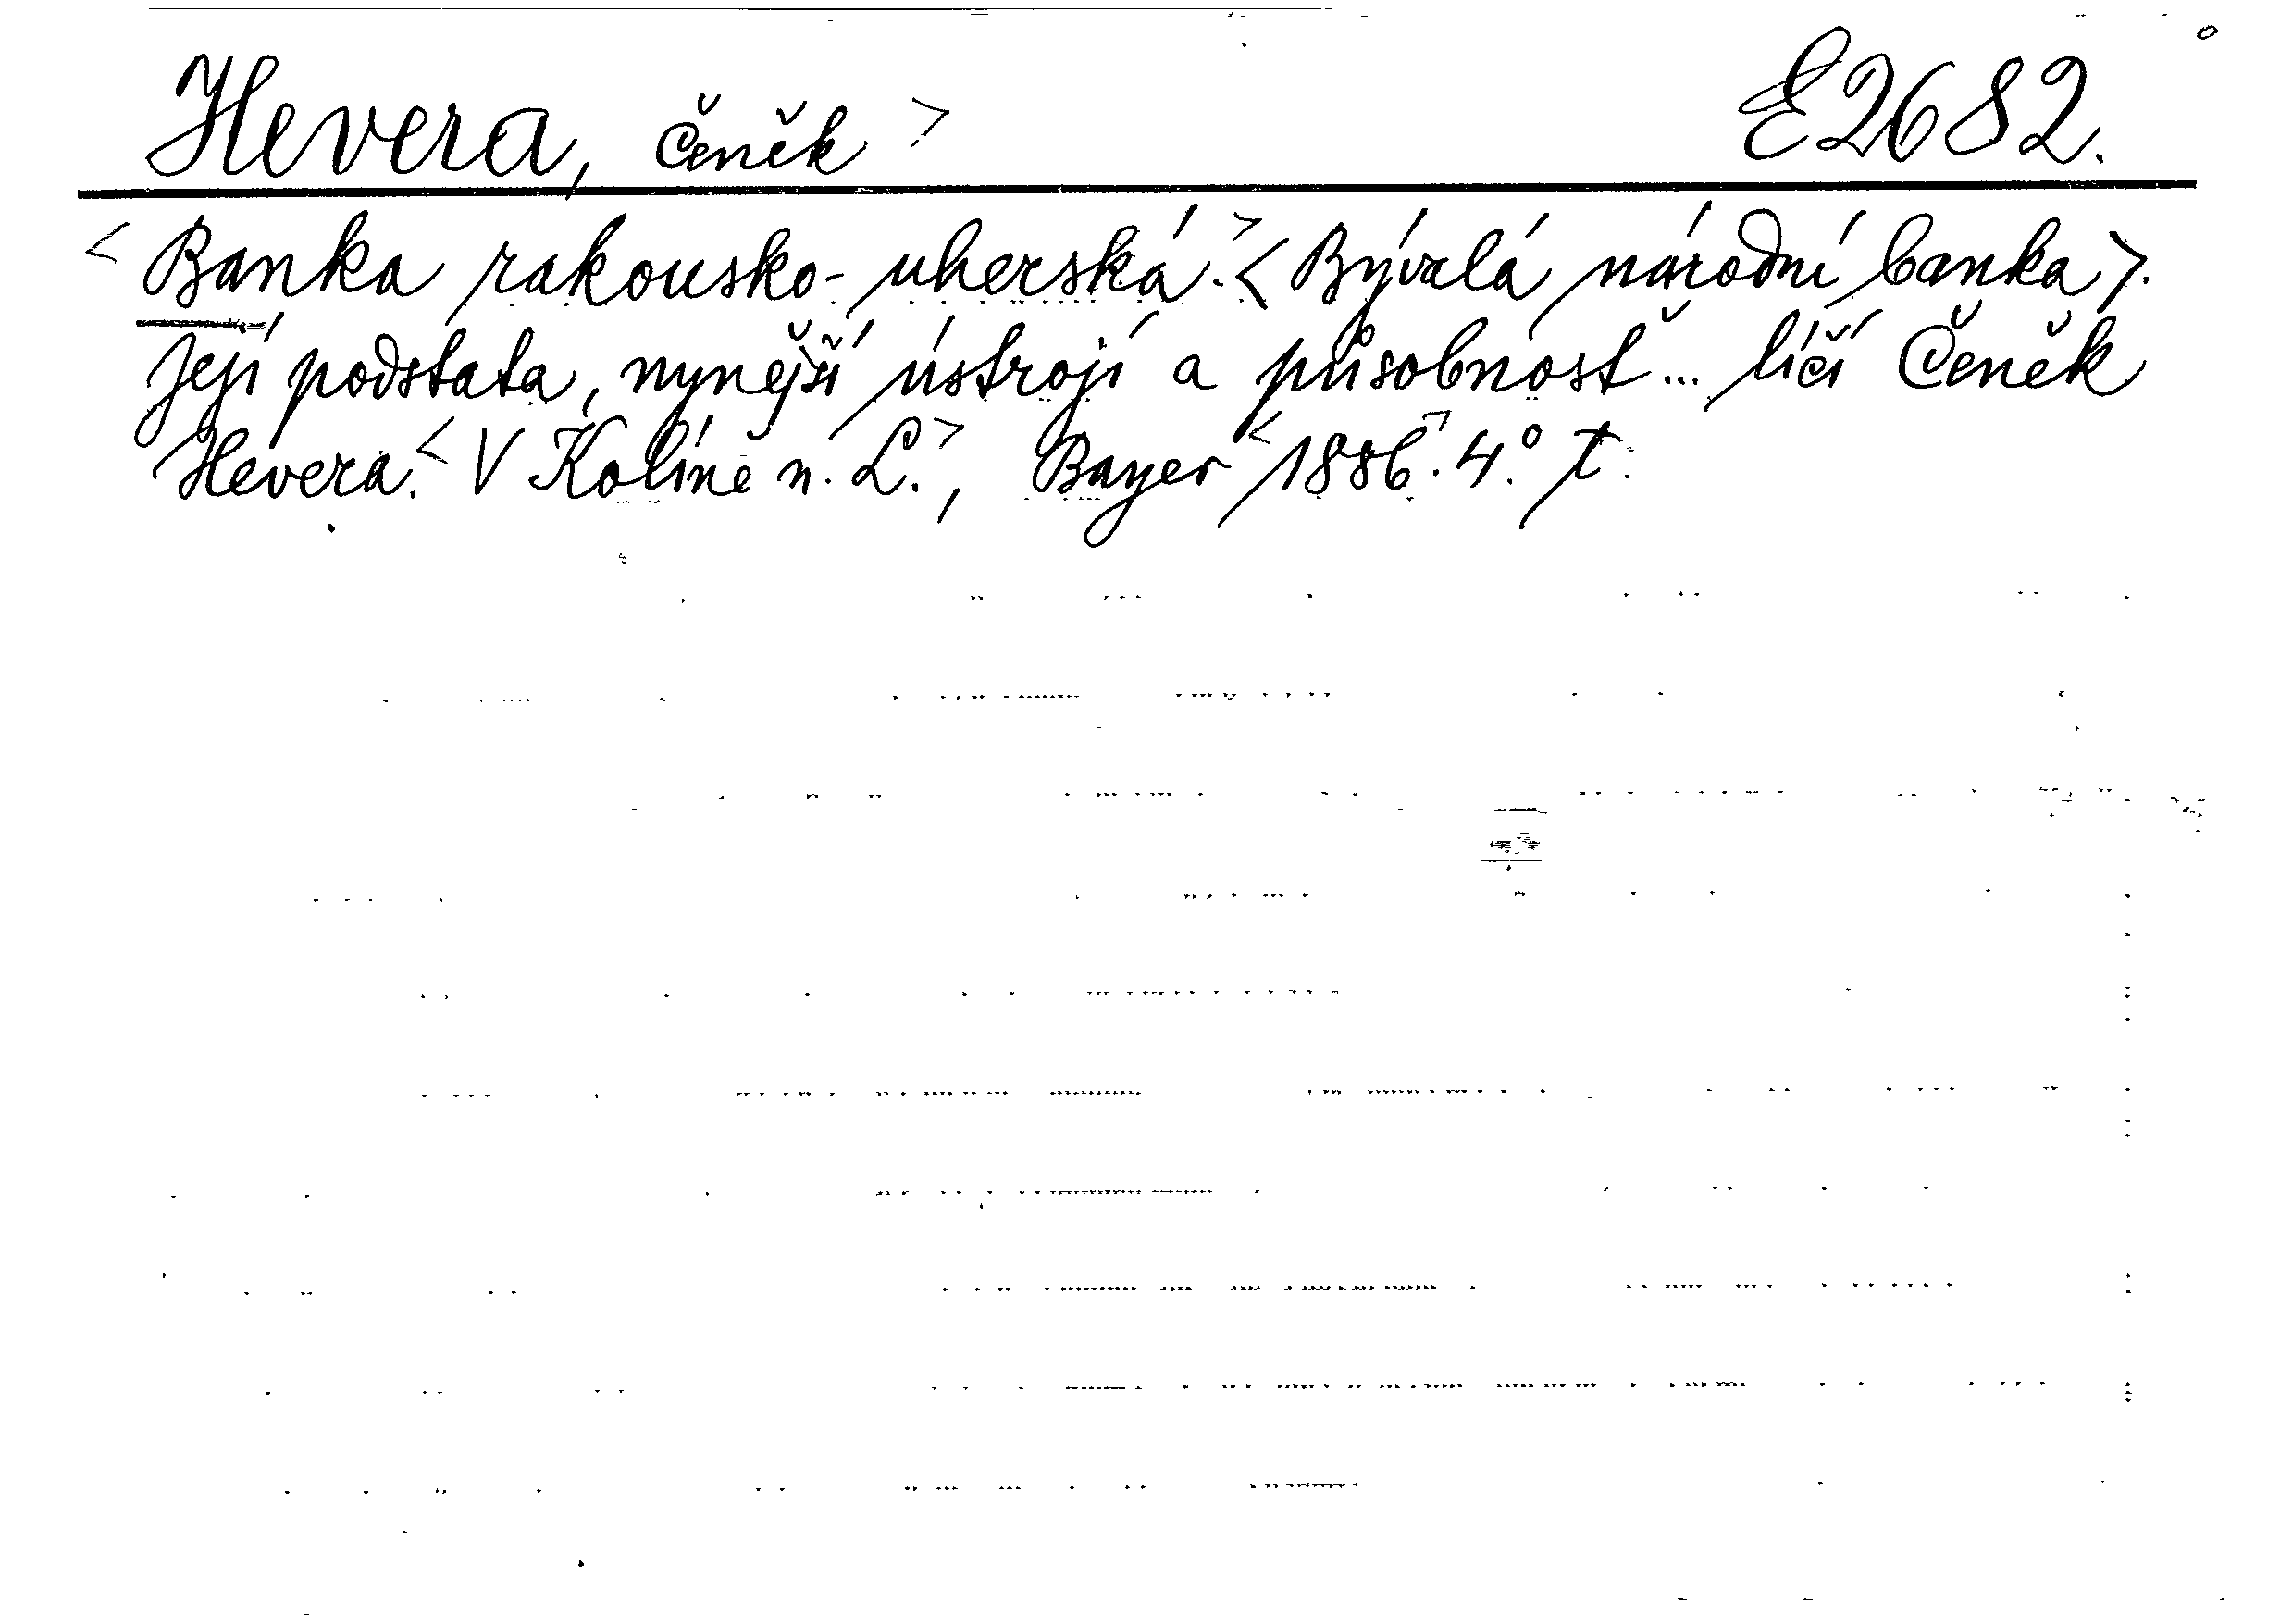 Hevera, Čeněk > E2682.
< Banka rakousko-uherská.> < Bývalá národní banka >.
Její podstata, nynější ústrojí a působnosť... líčí Čeněk
Hevera. < V Kolíně n. L. >, Bayer < 1886 >. 4.° t.